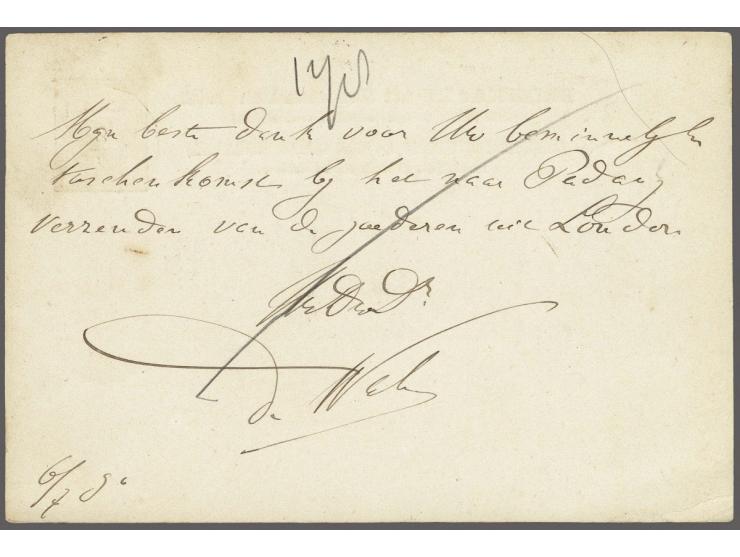 Mijn beste dank voor Uw beminnelijke
tusschenkomst bij het naar Padang
verzenden van de goederen uit London
Uw Dw Dr
De
6/7 80